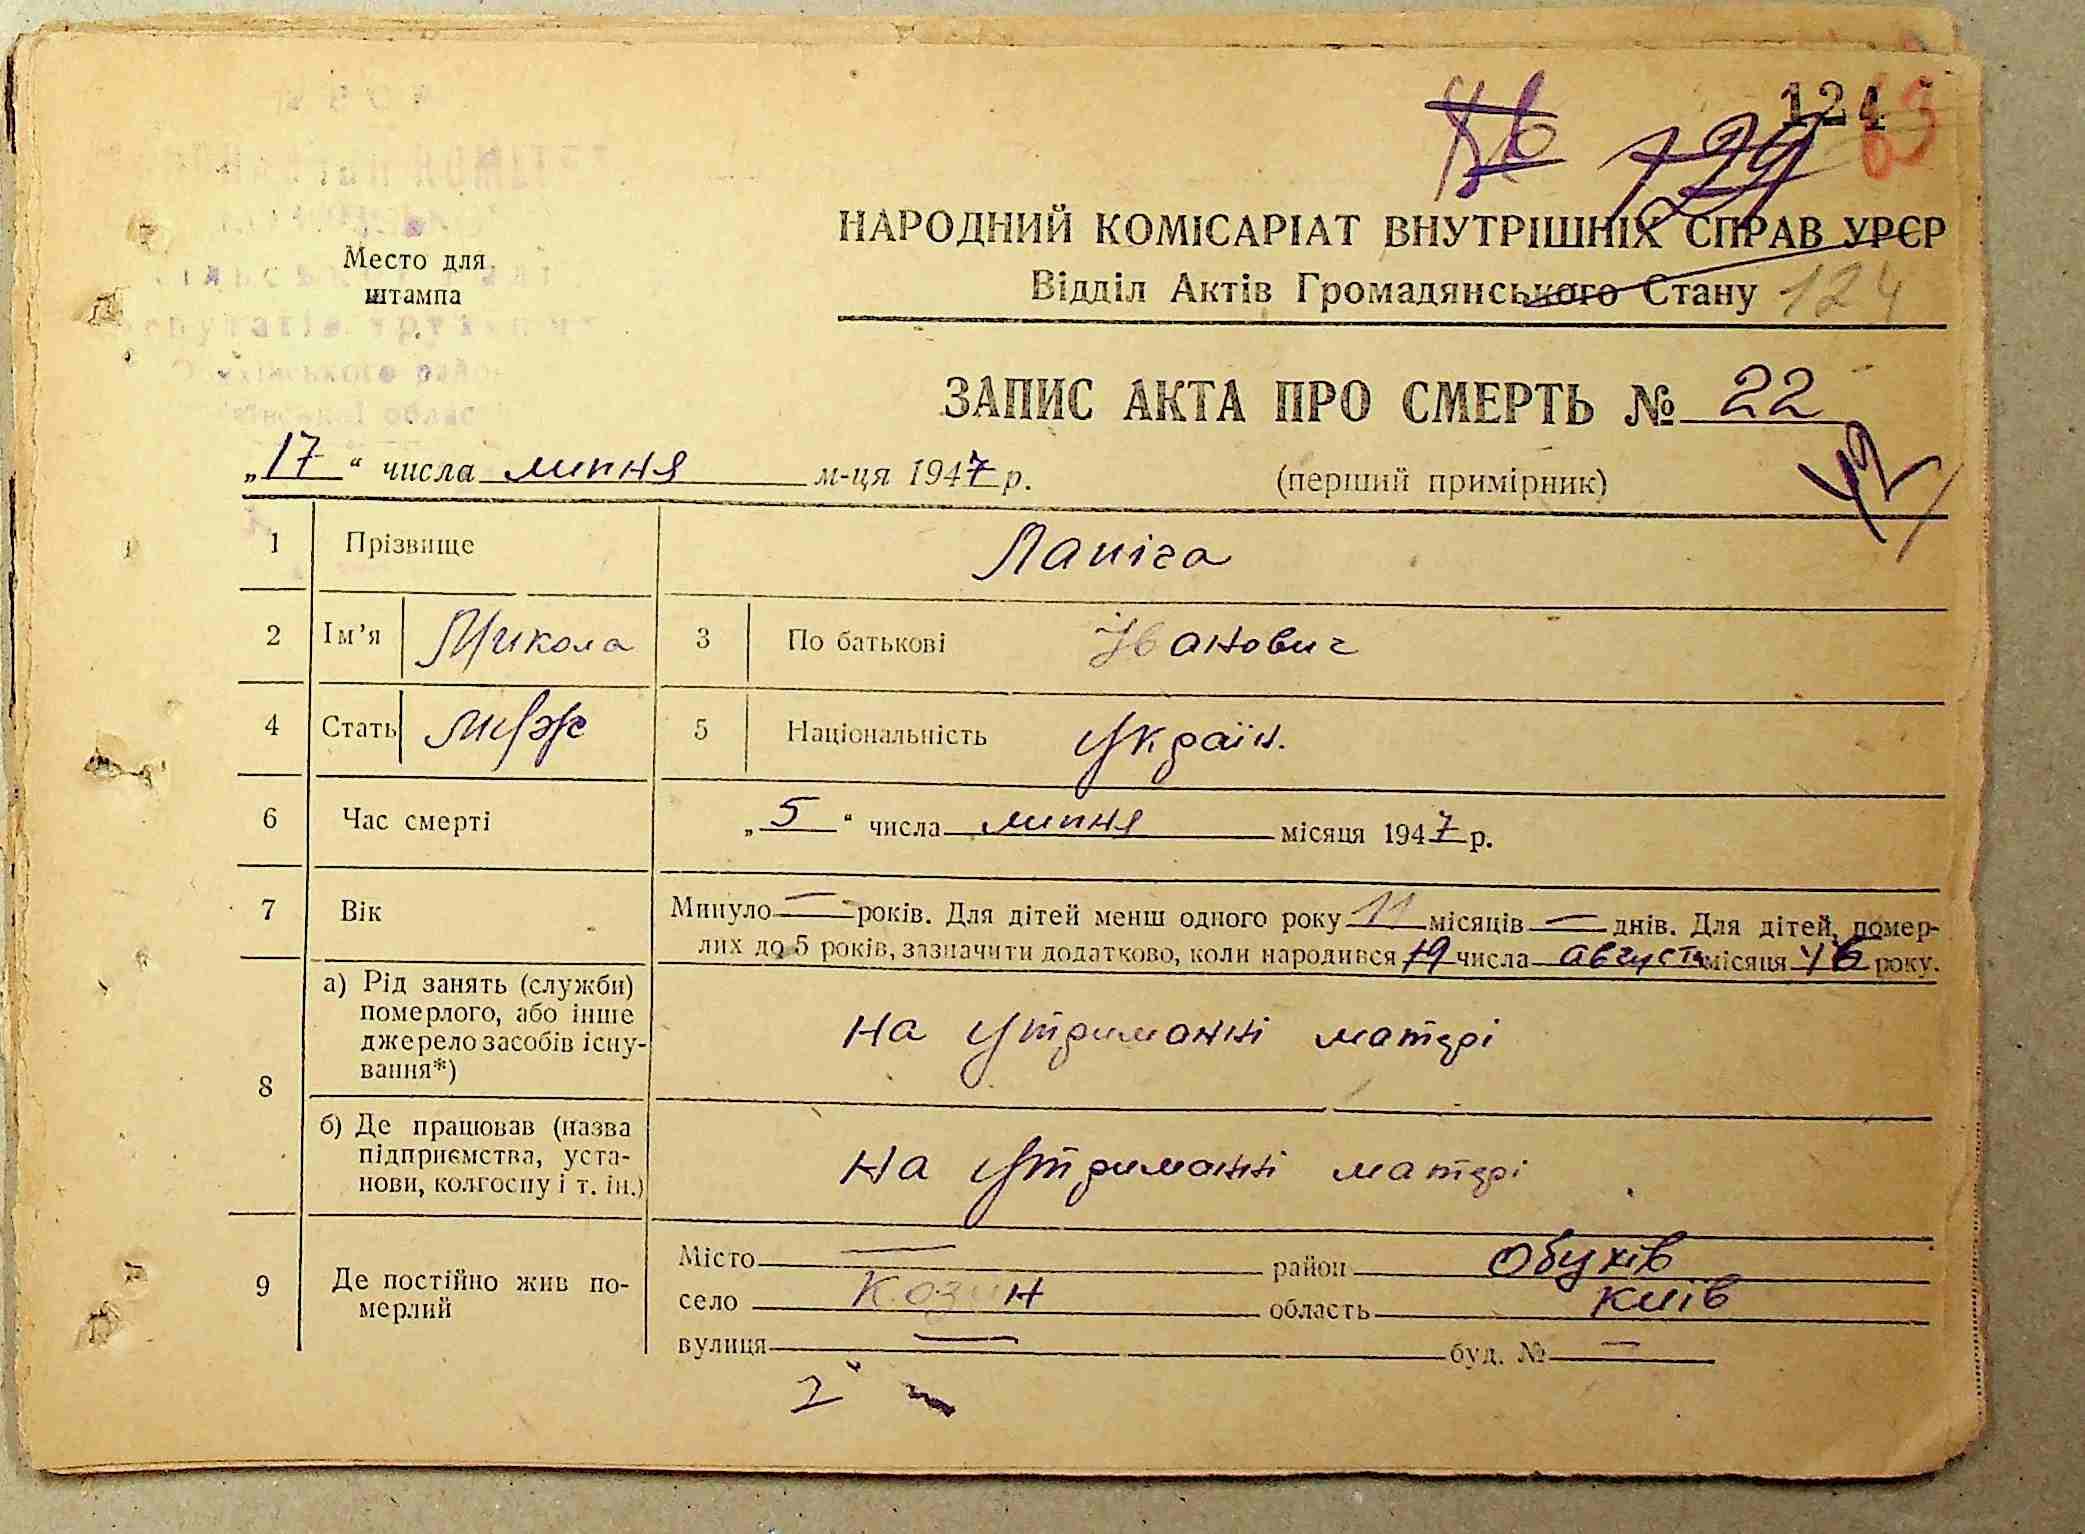 124
729
Место для
штампа
НАРОДНИЙ КОМІСАРІАТ ВНУТРІШНІХ СПРАВ УРЄР
Відділ Актів Громадянського Стану 124
ЗАПИС АКТА ПРО СМЕРТЬ № 22
„17“ числа липня м-ця 1947 р. (перший примірник)
1 Прізвище Лапіга
2 Ім’я Микола 3 По батькові Іванович
4 Стать муж 5 Національність Україн.
6 Час смерті „5“ числа липня місяця 1947 р.
7 Вік Минуло — років. Для дітей менш одного року 11 місяців — днів. Для дітей, помер-
лих до 5 років, зазначити додатково, коли народився 19 числа августа місяця 46 року.
8 а) Рід занять (служби)
померлого, або інше
джерело засобів існу-
вання*)
на утриманні матері
б) Де працював (назва
підприємства, уста-
нови, колгоспу і т. ін.)
на утриманні матері
9 Де постійно жив по-
мерлий
Місто — район Обухів
село Козин область Київ
вулиця — буд. № —